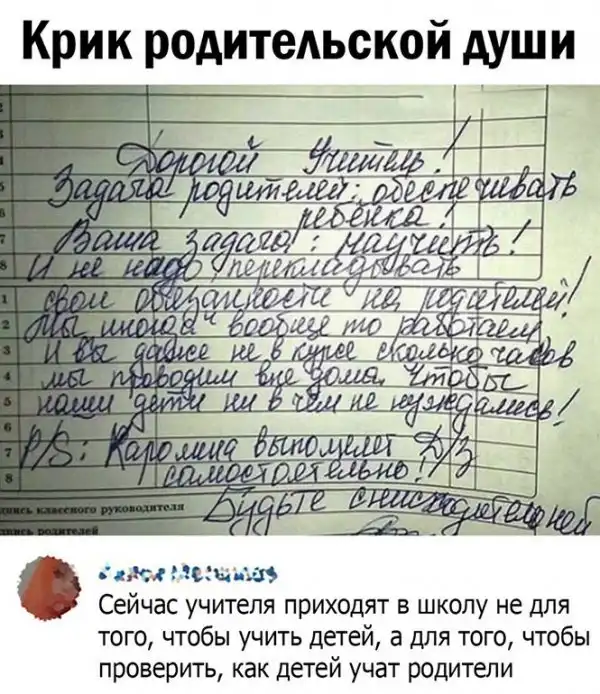 Крик родительской души
Дорогой Учитель!
Задача родителей: обеспечивать
ребёнка!
Ваша задача!: научить!
И не надо перекладывать
свои обязанности на родителей!
Мы иногда вообще то работаем
И вы даже не в курсе сколько часов
мы проводим вне дома, чтобы
наши дети ни в чём не нуждались!
P/S: Каролина выполняет Д/З
самостоятельно!!
Будьте снисходительней
пись классного руководителя
пись родителей
2
3
4
5
6
7
8
1
2
3
4
5
6
7
8
Сейчас учителя приходят в школу не для
того, чтобы учить детей, а для того, чтобы
проверить, как детей учат родители